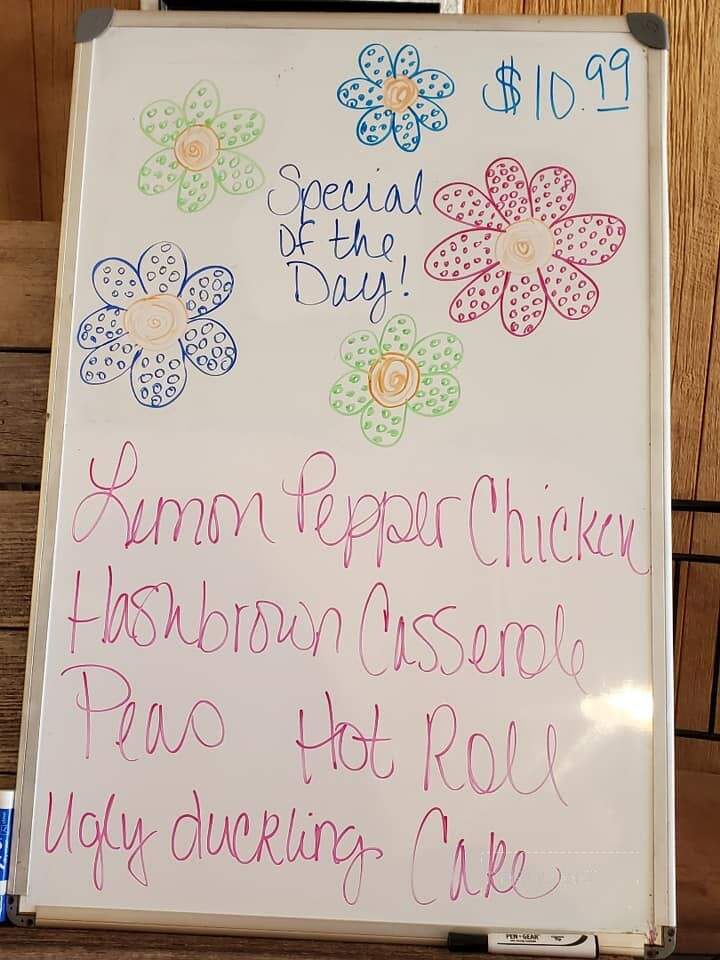 $10.99
Special
Of the
Day!
Lemon Pepper Chicken
Hashbrown Casserole
Peas Hot Roll
Ugly duckling Cake
PEN+GEAR